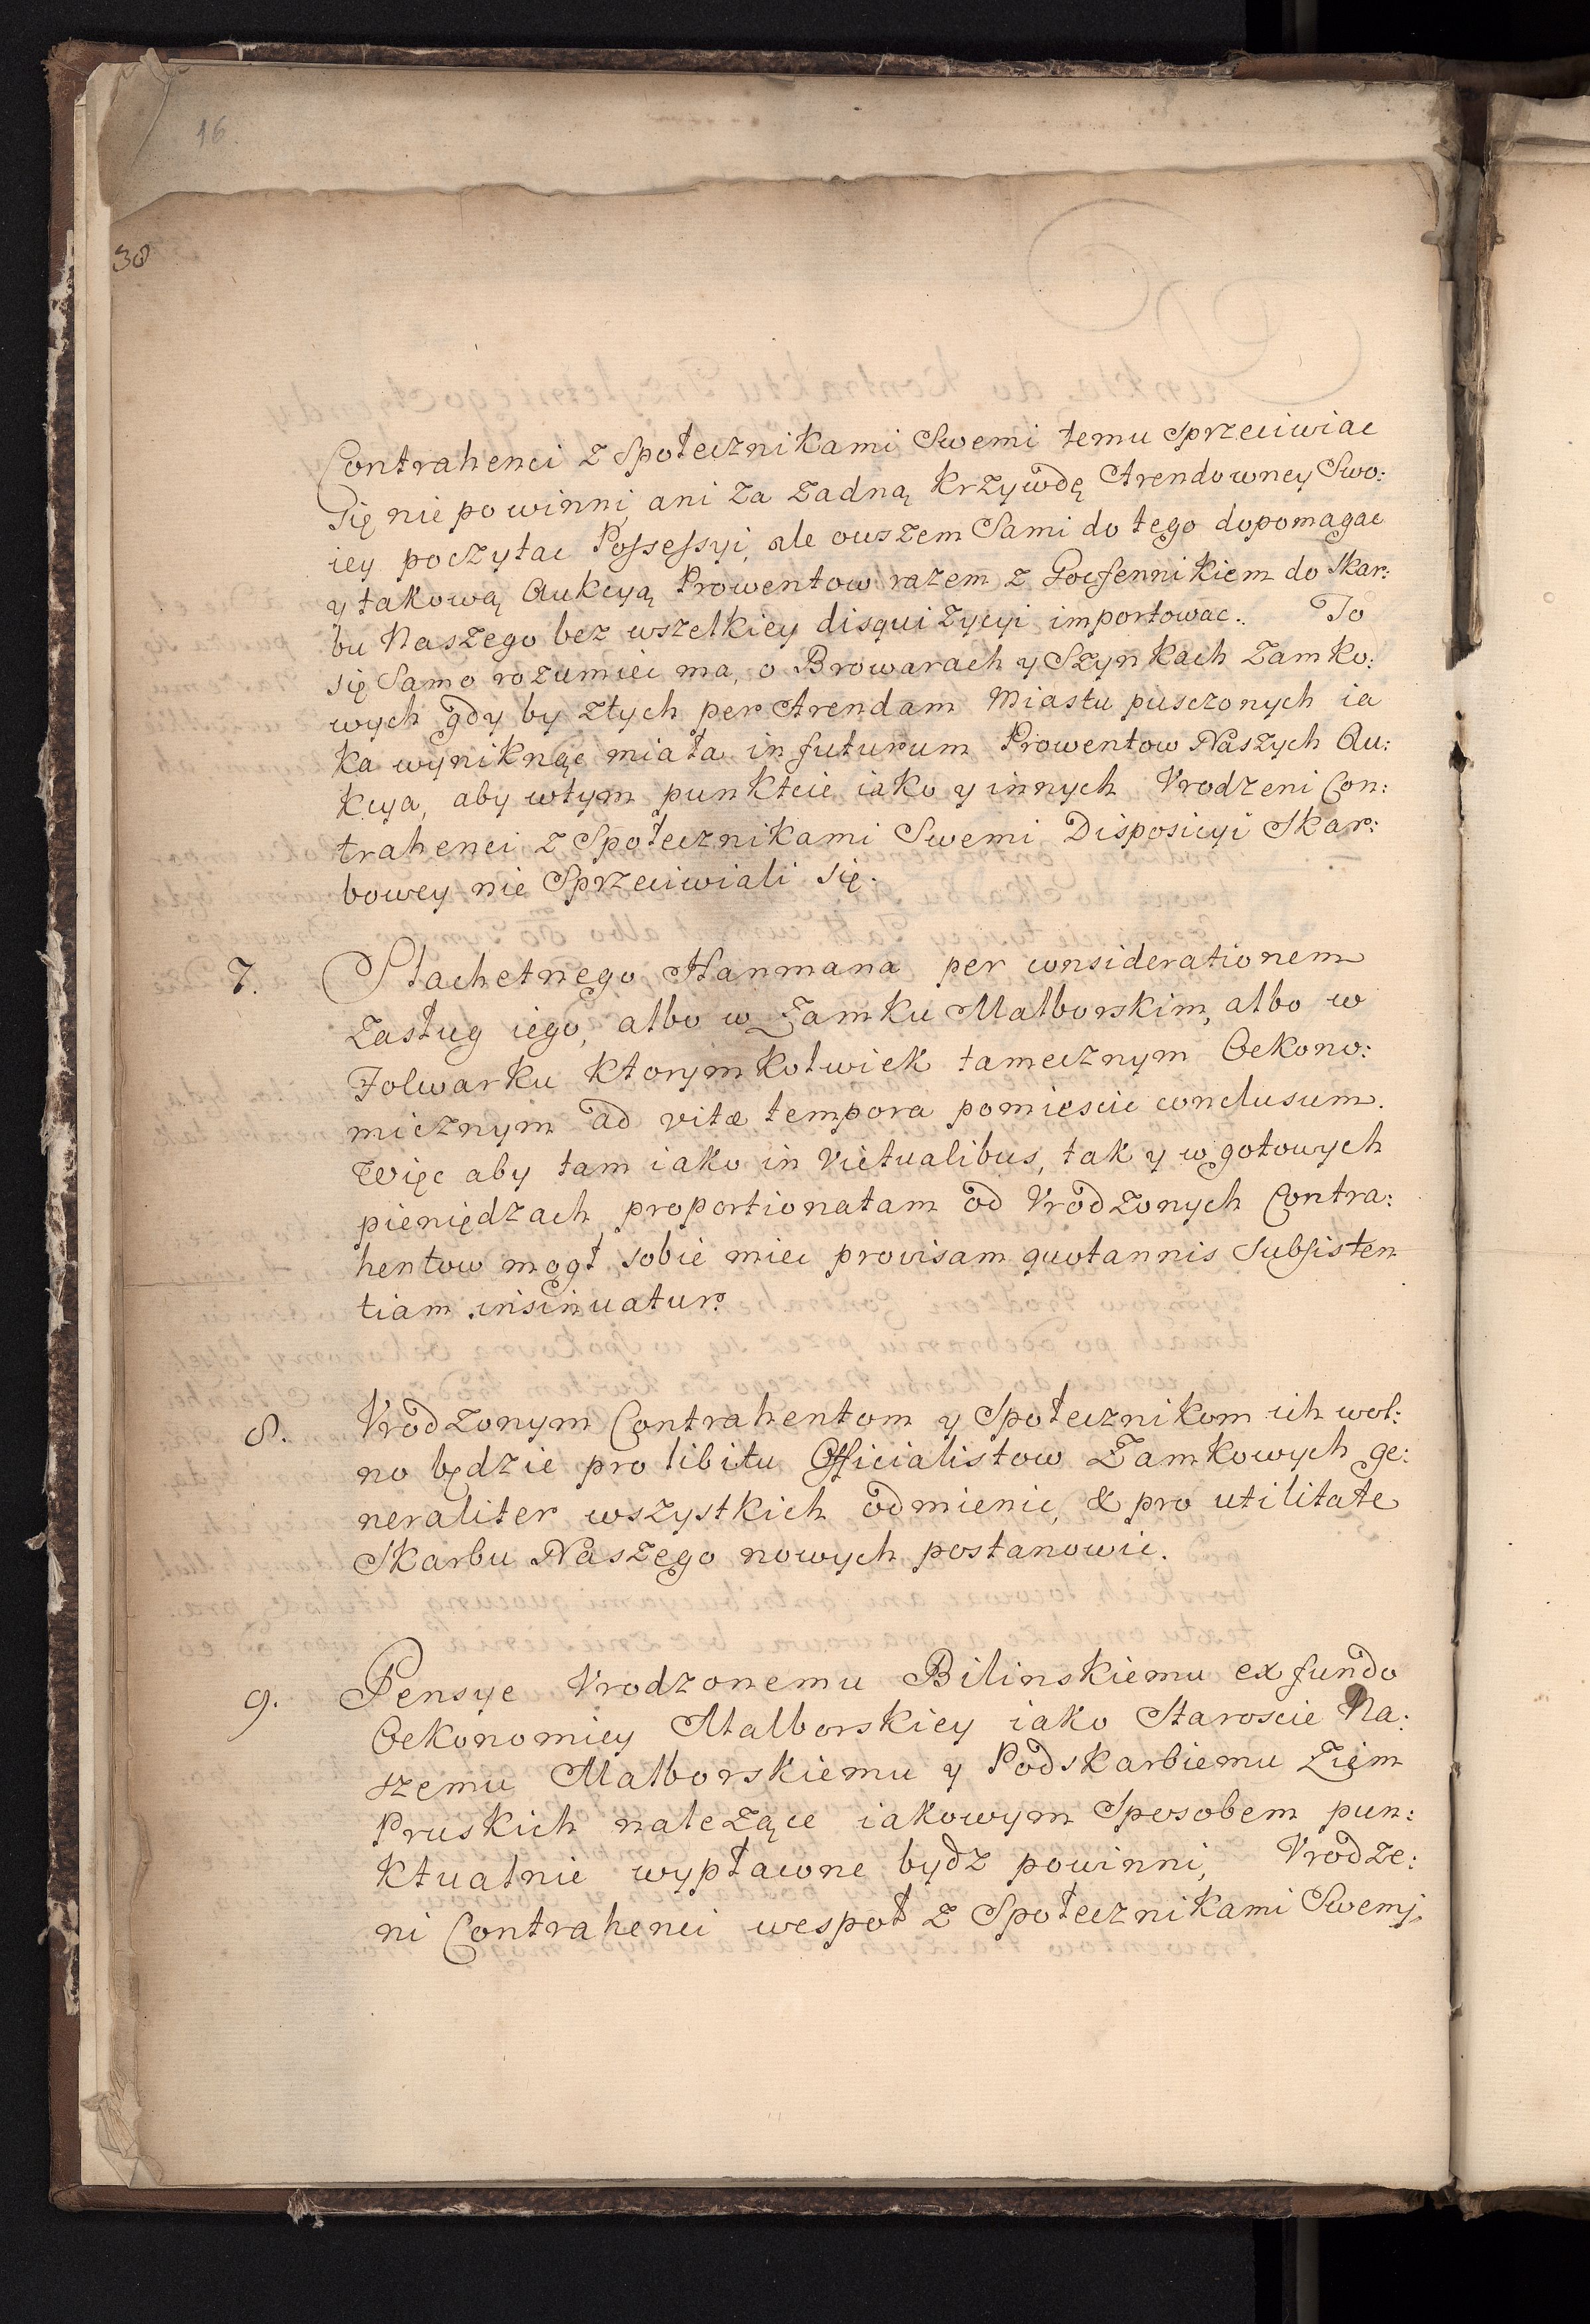 16.
38
Contrahenci z Społecznikami Swemi temu sprzeciwiac
się nie powinni, ani za żadną Krzywdę Arendowney Swo:
iey poczytac Possessyi, ale owszem Sami do tego dopomagac
y takową Aukcyą Prowentow razem z Goessennikiem do Skar:
bu Naszego bez wszelkiey disquizycyi importowac. To
się Samo rozumiec ma, o Browarach y Szynkach Zamko:
wych gdy by ztych per Arendam Miastu pusczonych ia
ka wyniknąc miała in futurum Prowentow Naszych Au:
kcya, aby wtym punkcie iako y innych Vrodzeni Con:
trahenci z Społecznikami Swemi Disposicyi Skar:
bowey nie Sprzeciwiali się.
7. Slachetnego Hanmana per considerationem
Zasług iego, albo w Zamku Malborskim, albo w
Folwarku Ktorymkolwiek tamecznym Oekono:
micznym ad vitæ tempora pomiescic conclusum.
Więc aby tam iako in Victualibus, tak y w gotowych
pieniędzach proportionatam od Vrodzonych Contra:
hentow mogł sobie miec provisam quotannis Subsisten
tiam insinuatur.
8. Vrodzonym Contrahentom y Społecznikom ich wol:
no będzie pro libitu Officialistow Zamkowych ge:
neraliter wszystkich odmienic, & pro utilitate
Skarbu Naszego nowych postanowic.
9. Pensye Vrodzonemu Bilinskiemu ex fundo
Oekonomiey Malborskiey iako Staroscie Na:
szemu Malborskiemu y Podskarbiemu Ziem
Pruskich należące iakowym Sposobem pun:
ktualnie wypłacone bydz powinni, Vrodze:
ni Contrahenci wespoł z Społecznikami Swemi,